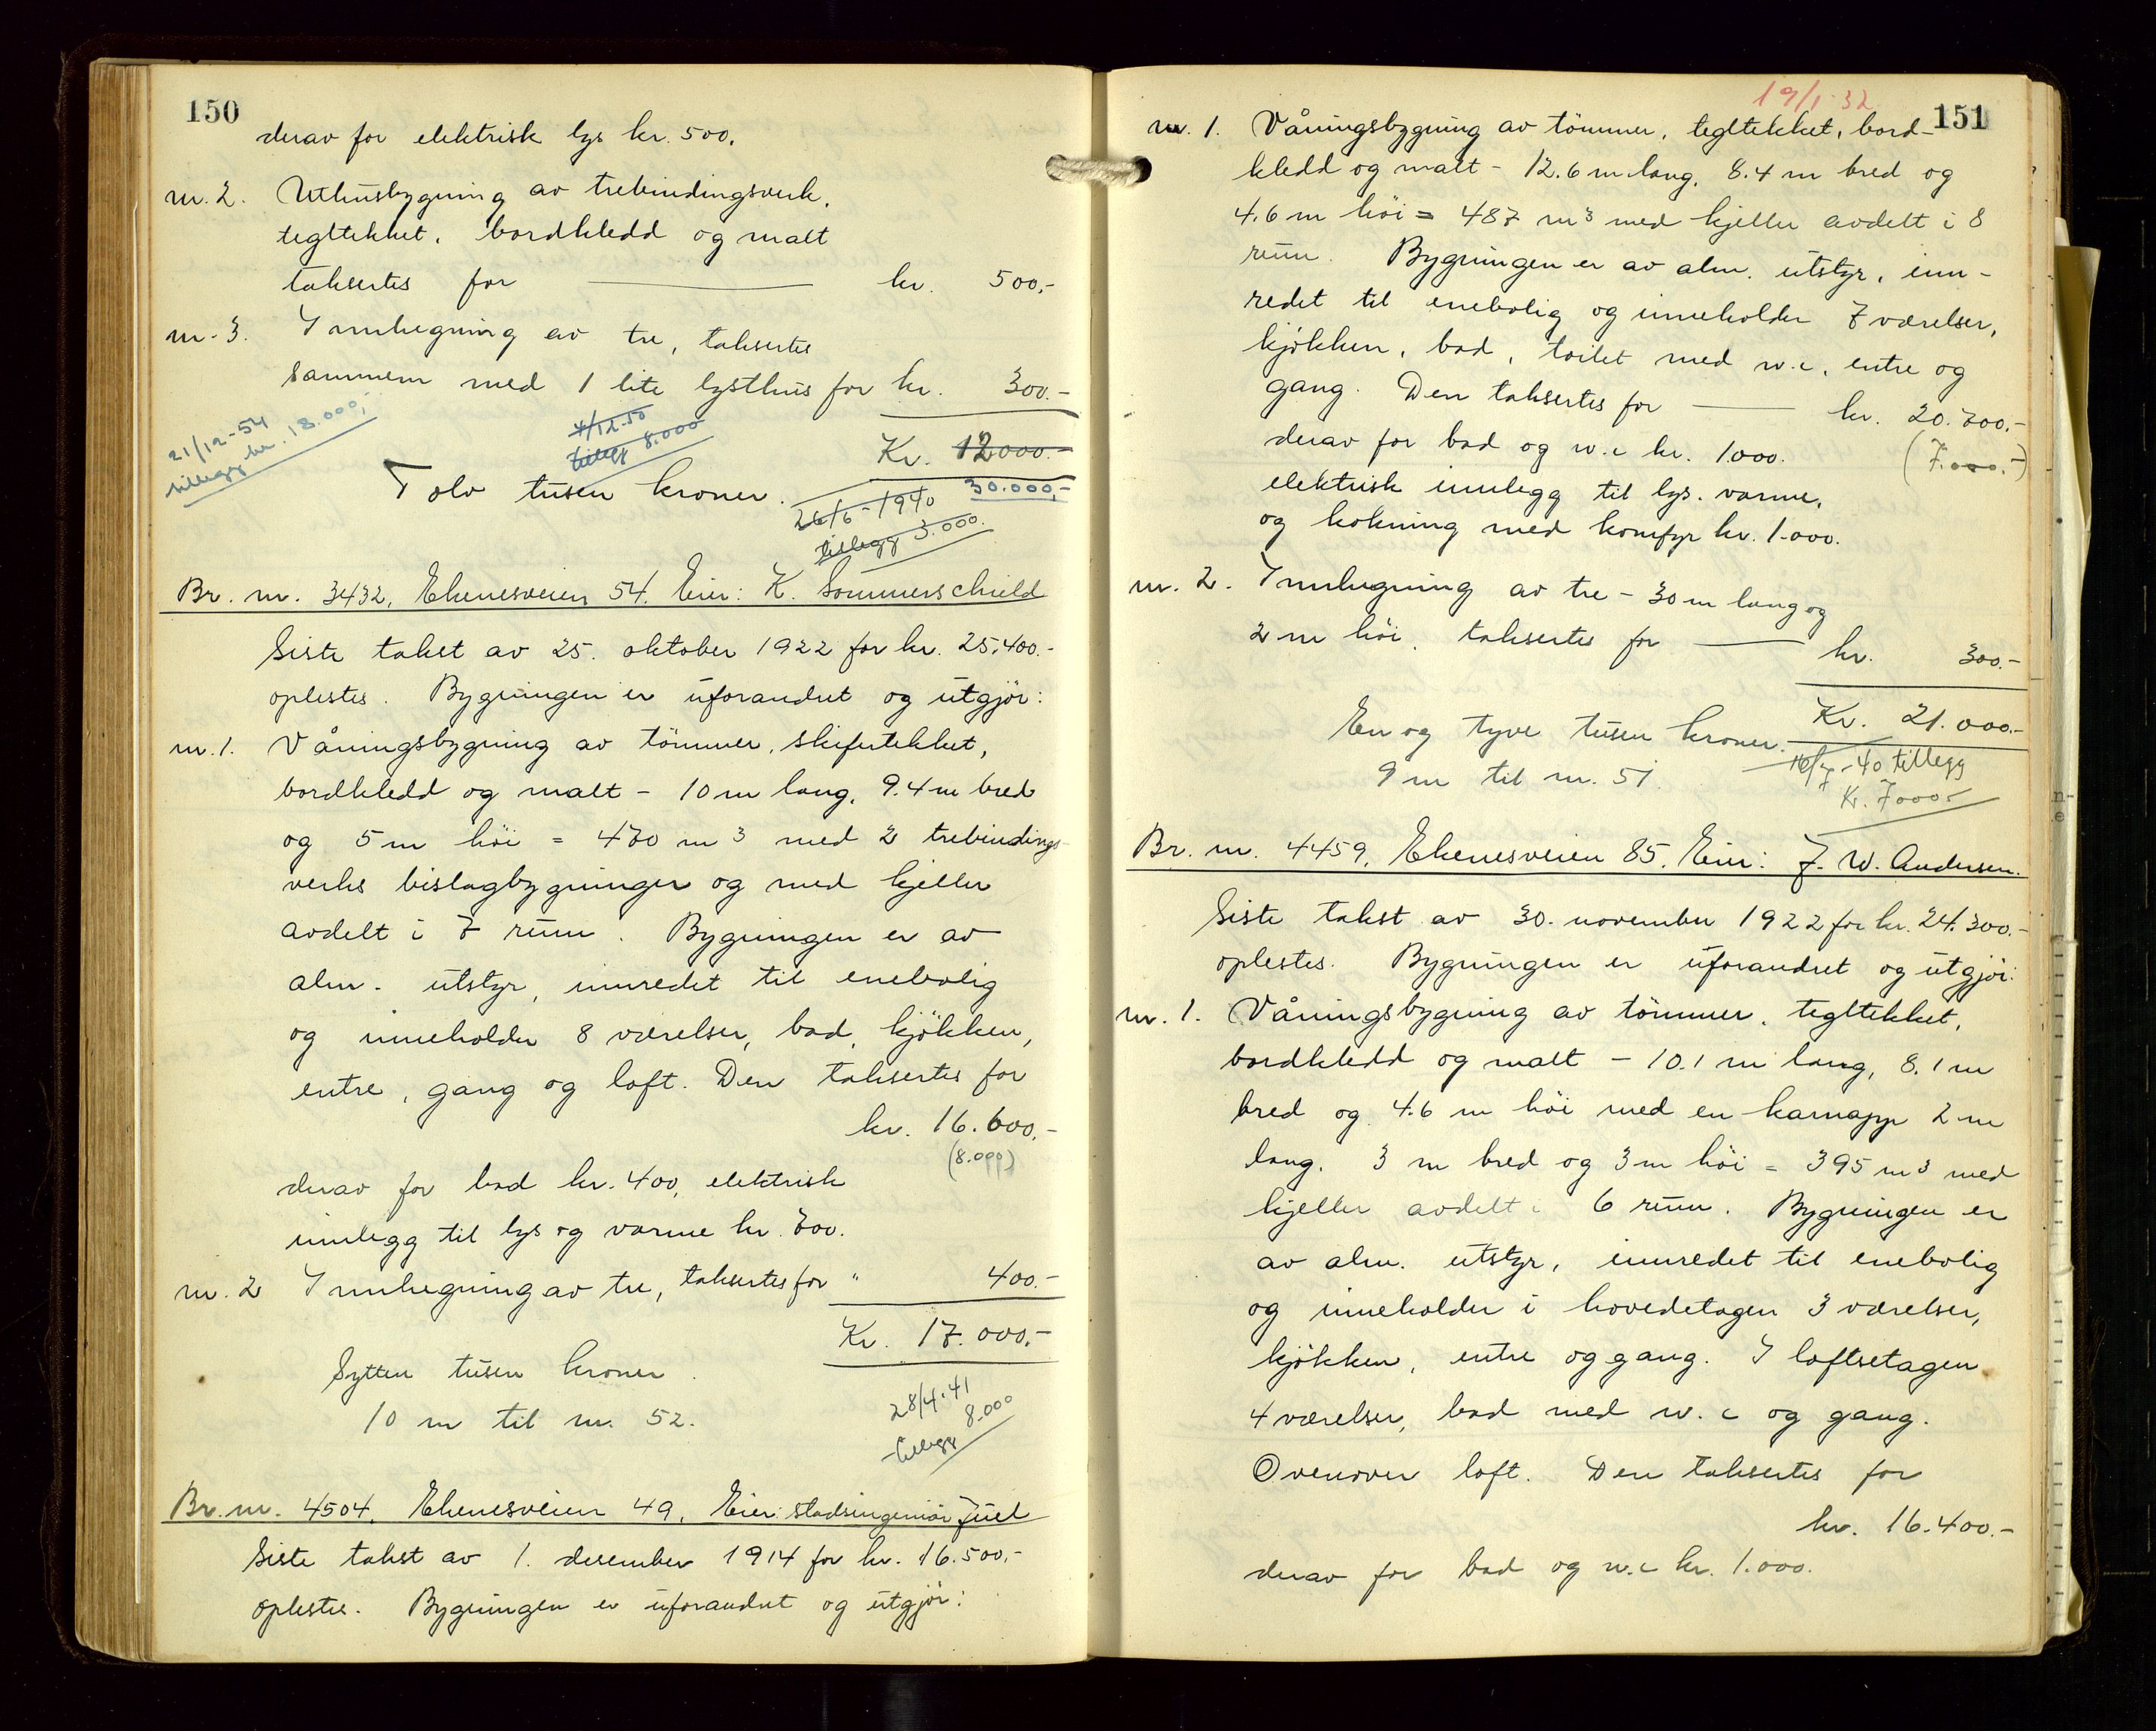 150
derav for elektrisk lys kr. 500.
nr. 2. Uthusbygning av trebindingsverk,
tegltekket, bordkledd og malt
taksertes for kr. 500.-
nr. 3. Innhegning av tre, taksertes
sammem med 1 lite lysthus for kr. 300.-
21/12-54
tillegg kr. 18.000,-
4/12.50
tillegg 8.000
Kr. 12000.-
30.000,-
Tolv tusen kroner.
26/6-1940
tillegg 3.000.
Br. nr. 3432, Ekenesveien 54. Eier: K. Sommerschield
Siste takst av 25. oktober 1922 for kr. 25.400.-
oplestes. Bygningen er uforandret og utgjör:
nr. 1. Våningsbygning av tömmer, skifertekket,
bordkledd og malt - 10 m lang, 9.4 m bred
og 5 m höi = 470 m3 med 2 trebindings-
verks bislagbygninger og med kjeller
avdelt i 7 rum. Bygningen er av
alm. utstyr, innredet til enebolig
og inneholder 8 værelser, bad, kjökken,
entre, gang og loft. Den taksertes for
kr. 16.600.-
(8.000)
derav for bad kr. 400, elektrisk
innlegg til lys og varme kr. 700.
nr. 2 Innhegning av tre, taksertes for " 400.-
Kr. 17.000.-
Sytten tusen kroner.
10 m til nr. 52.
28/4-41
tillegg 8.000
Br. nr. 4504, Ekenesveien 49, Eier: stadsingeniör Juel
Siste takst av 1. desember 1914 for kr. 16.500,-
oplestes. Bygningen er uforandret og utgjör:
19/1-32
151
nr. 1. Våningsbygning av tömmer, tegltekket, bord-
kledd og malt - 12.6 m lang, 8.4 m bred og
4.6 m höi = 487 m3 med kjeller avdelt i 8
rum. Bygningen er av alm. utstyr, inn-
redet til enebolig og inneholder 7 værelser,
kjökken, bad, toilet med w.c, entre og
gang. Den taksertes for kr. 20.700.-
derav for bad og w.c kr. 1000. (7.000.-)
elektrisk innlegg til lys, varme,
og kokning med komfyr kr. 1.000.
nr. 2. Innhegning av tre - 30 m lang og
2 m höi, taksertes for kr. 300.-
Kr. 21.000.-
En og tyve tusen kroner.
9 m til nr. 51.
16/7-40 tillegg
Kr. 7000.-
Br. nr. 4459, Ekenesveien 85, Eier: J. W. Andersen.
Siste takst av 30. november 1922 for kr. 24.300.-
oplestes. Bygningen er uforandret og utgjör:
nr. 1. Våningsbygning av tömmer, tegltekket,
bordkledd og malt - 10.1 m lang, 8.1 m
bred og 4.6 m höi med en karnapp 2 m
lang, 3 m bred og 3 m höi = 395 m3 med
kjeller avdelt i 6 rum. Bygningen er
av alm. utstyr, innredet til enebolig
og inneholder i hovedetagen 3 værelser,
kjökken, entre og gang. I loftsetagen
4 værelser, bad med w.c og gang.
Ovenover loft. Den taksertes for
kr. 16.400.-
derav for bad og w.c kr. 1.000.